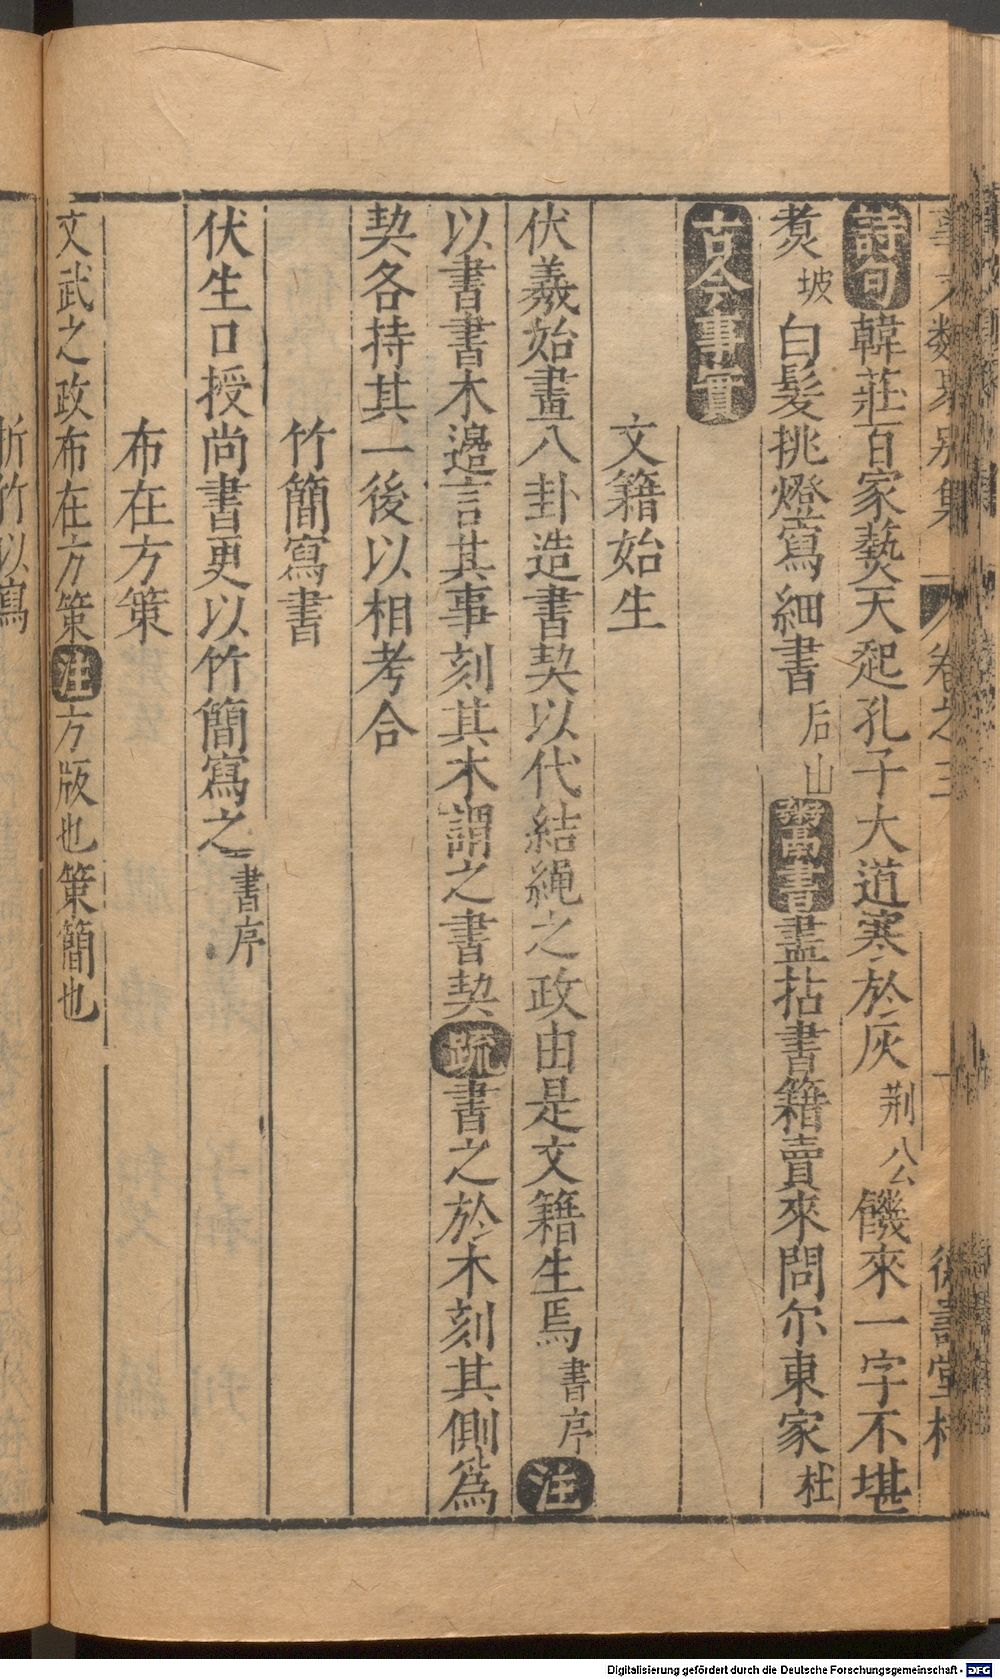 事文類聚別集 卷之三 一
詩句韓莊百家爇天起孔子大道寒於灰荆公饑來一字不堪
煑坡白髮挑燈寫細書后山鬻書盡拈書籍賣來問尔東家杜
古今事實
文籍始生
伏羲始畫八卦造書契以代結繩之政由是文籍生焉書序注
以書書木邉言其事刻其木謂之書契疏書之於木刻其側爲
契各持其一後以相考合
竹簡寫書
伏生口授尚書更以竹簡寫之書序
布在方策
文武之政布在方策注方版也策簡也
折竹以寫
Digitalisierung gefördert durch die Deutsche Forschungsgemeinschaft - DFG